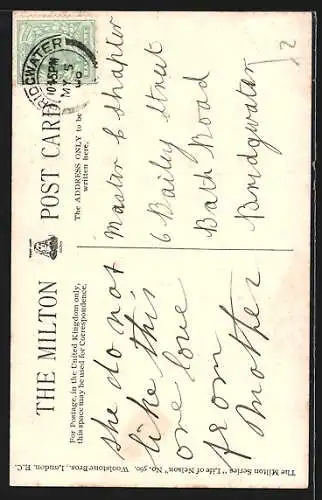 THE MILTON POST CARD.
For Postage, in the United Kingdom only,
this space may be used for Correspondence.
The ADDRESS ONLY to be
written here.
she do not
like this
one love
from
Mother
BRIDGWATER
1045PM
MY 5
Master C Shapter
6 Bailey Street
Bath Road
Bridgwater
2
The Milton Series "Life of Nelson" No. 560. Woolstone Bros., London, E.C.